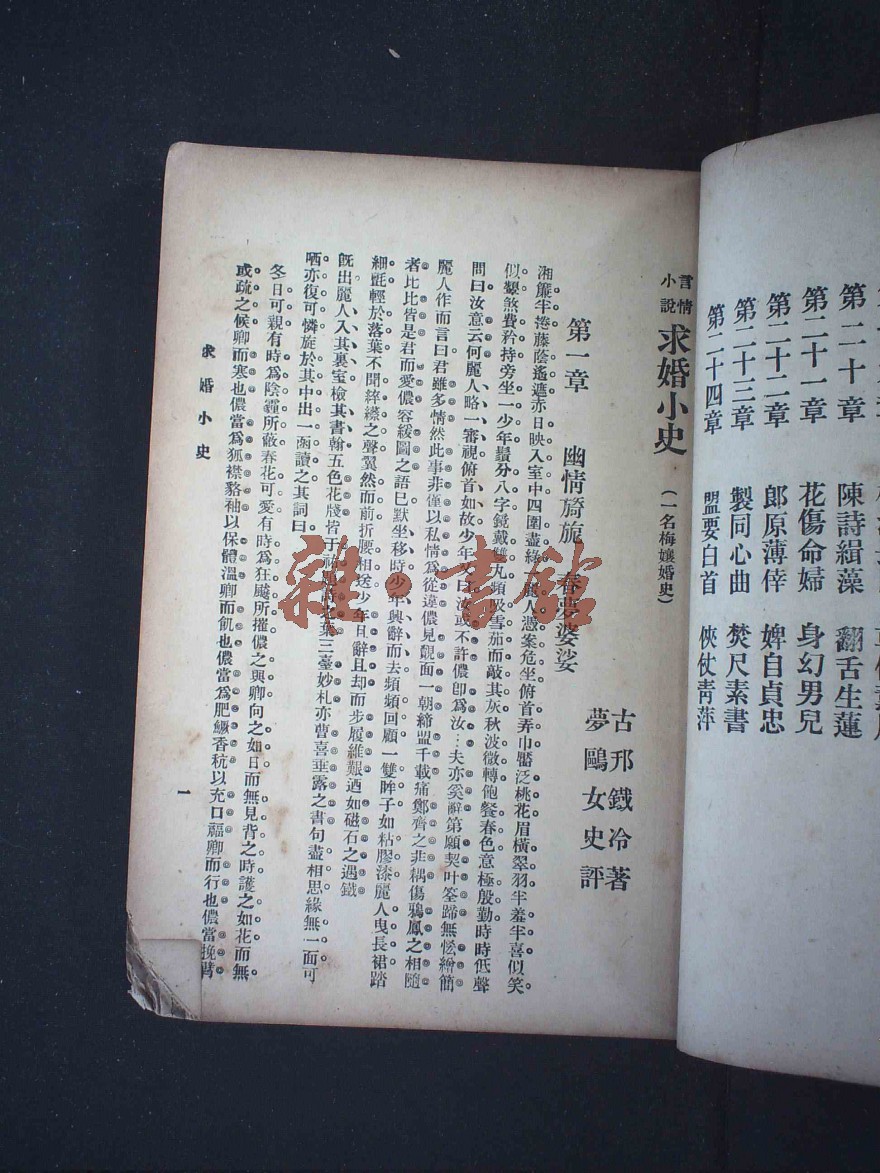 第二十章　陳詩緝藻　翻舌生蓮
第二十一章　花傷命婦　身幻男兒
第二十二章　郎原薄倖　婢自貞忠
第二十三章　製同心曲　焚尺素書
第二十四章　盟要白首　俠仗靑萍
言情小說 求婚小史 （一名梅孃婚史）
古邗鐵冷著
夢鷗女史評
第一章　幽情旖旎　春夢婆娑
湘簾半捲藤蔭遙遮赤日映入室中四圍盡綠一麗人憑案危坐俯首弄巾靨泛桃花眉橫翠羽半羞半喜似笑
似顰煞費矜持旁坐一少年鬚分八字鏡戴雙丸頻吸雪茄而敲其灰秋波微轉飽餐春色意極殷勤時時低聲
問曰汝意云何麗人略一審視俯首如故少年又曰汝或不許儂卽爲汝…夫亦奚辭第願契叶筌蹄無慭繪簡
麗人作而言曰君雖多情然此事非僅以私情爲從違儂見覿面一朝締盟千載痛鄭齊之非耦傷鴉鳳之相隨
者比比皆是君而愛儂容緩圖之語已默坐移時少年興辭而去頻頻回顧一雙眸子如粘膠漆麗人曳長裙踏
細氈輕於落葉不聞綷縩之聲翼然而前折腰相送少年且辭且却而步履維艱迺如磁石之遇鐵
旣出麗人入其裏室檢其書翰五色花牋皆于祐題詩之葉三臺妙札亦曹喜垂露之書句盡相思緣無一面可
哂亦復可憐旋於其中出一函讀之其詞曰
冬日可親有時爲陰霾所蔽春花可愛有時爲狂颷所摧儂之與卿向之如日而無見背之時護之如花而無
或疏之候卿而寒也儂當爲狐襟貉袖以保體溫卿而飢也儂當爲肥鱖香秔以充口福卿而行也儂當挽臂
求婚小史
一
雜·書館